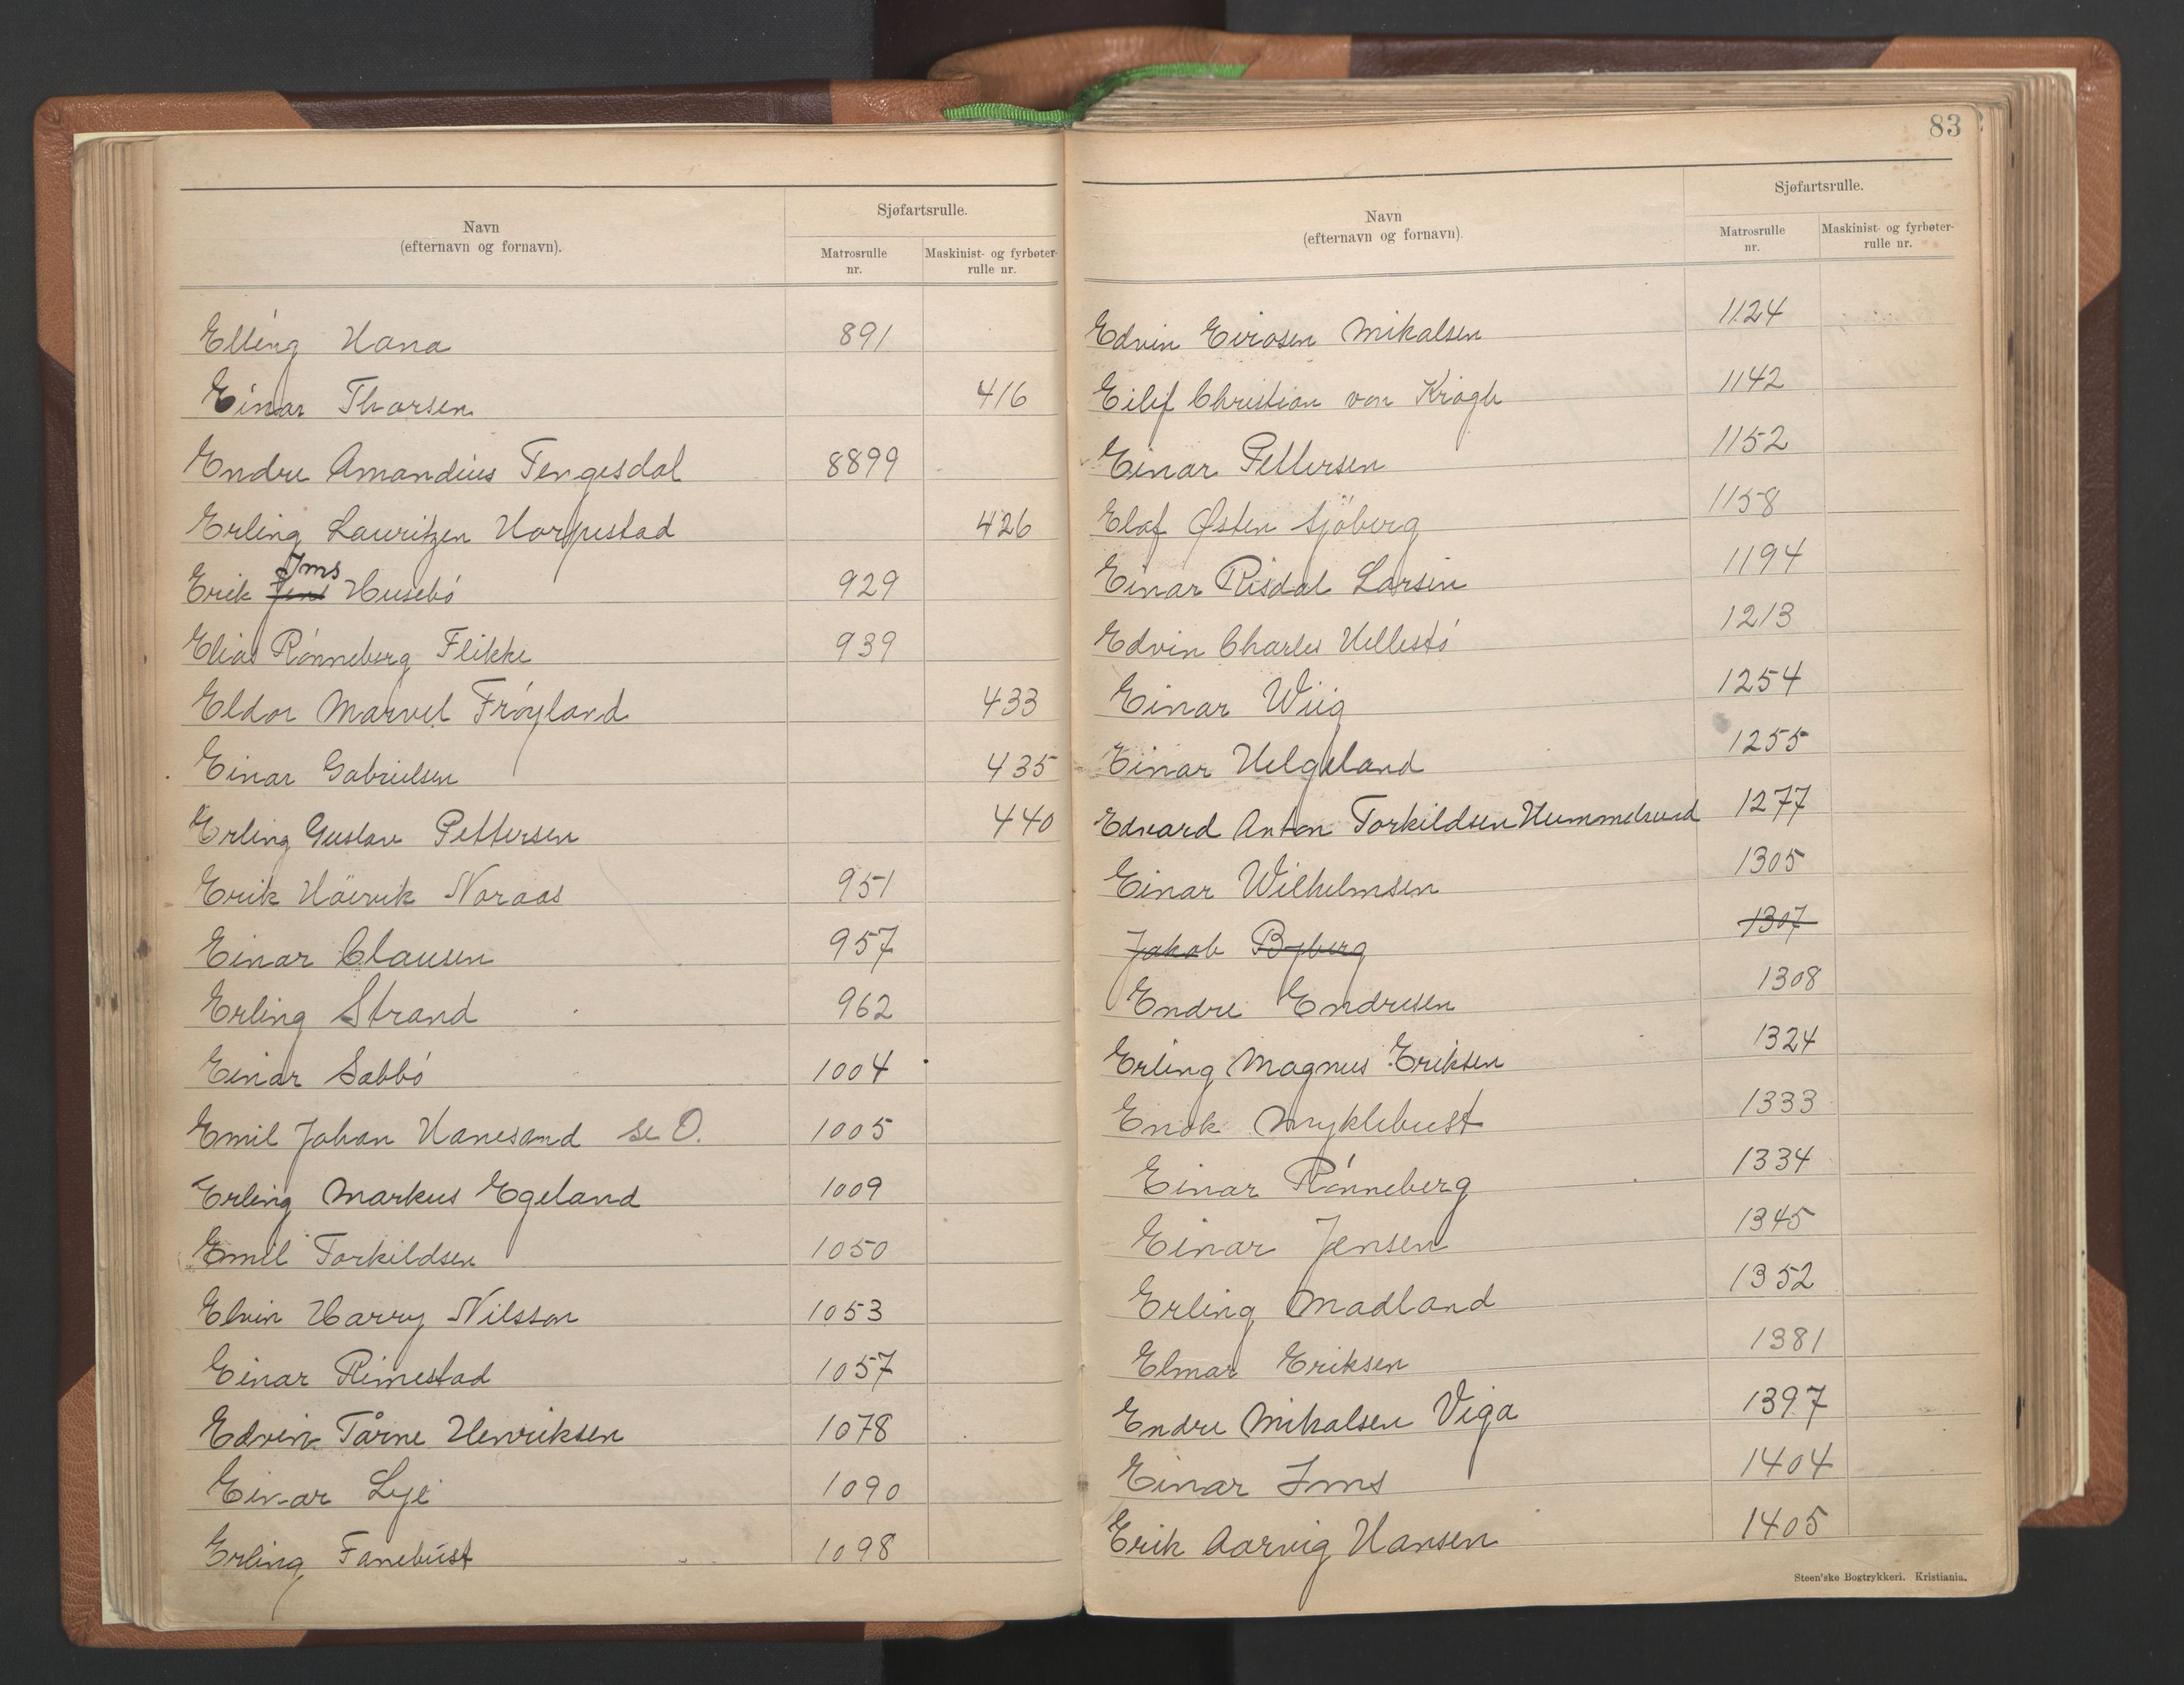 Navn
(efternavn og fornavn).
Sjøfartsrulle.
Matrosrulle nr.
Maskinist- og fyrbøter-rulle nr.
Elling Hana 891
Einar Thorsen 416
Endre Amandius Tengesdal 8899
Erling Lauritzen Horpestad 426
Ims
Erik Jens Husebö 929
Elias Rönneberg Flikke 939
Eldor Marvel Fröyland 433
Einar Gabrielsen 435
Erling Gustav Pettersen 440
Erik Höivik Noraas 951
Einar Clausen 957
Erling Strand 962
Einar Sabbö 1004
Emil Johan Hanesand se O. 1005
Erling Markus Egeland 1009
Emil Torkildsen 1050
Elvin Harry Nilsson 1053
Einar Rimestad 1057
Edvin Tårne Henriksen 1078
Einar Lye 1090
Erling Fanebust 1098
83
Navn
(efternavn og fornavn).
Sjøfartsrulle.
Matrosrulle nr.
Maskinist- og fyrbøter-rulle nr.
Edvin Mikalsen 1124
Eilif Christian von Krogh 1142
Einar Pettersen 1152
Elof Østen Sjöberg 1158
Einar Risdal Larsen 1194
Edvin Charles Hellestö 1213
Einar Wiig 1254
Einar Helgeland 1255
Edvard Anton Torkildsen Hummelsund 1277
Einar Wilhelmsen 1305
Jakob Byberg 1307
Endre Endresen 1308
Erling Magnus Eriksen 1324
Enok Myklebust 1333
Einar Rönneberg 1334
Einar Jensen 1345
Erling Madland 1352
Elmar Eriksen 1381
Endre Mikalsen Viga 1397
Einar Ims 1404
Erik Aarvig Hansen 1405
Steen'ske Bogtrykkeri. Kristiania.